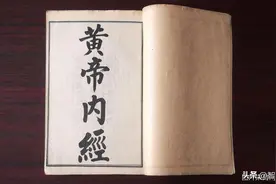 黄帝内經
头条